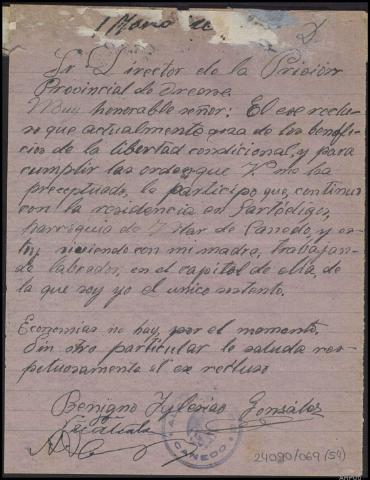 1 Marzo
Sr. Director de la Prisión
Provincial de Orense
Muy honorable señor: El ex reclu-
so que actualmente goza de los benefi-
cios de la libertad condicional, y para
cumplir las ordenes que V. me ha
preceptuado, le participo que, continuo
con la residencia en
parroquia de Villar de Canedo, y es-
toy viviendo con mi madre, trabajan-
do labrador, en el capitol de ella, de
la que soy yo el unico sostento.
Economias no hay, por el momento.
Sin otro particular le saluda res-
petuosamente el ex recluso
Benigno Yglesias Gonsáles
CANEDO
24080/069 (54)